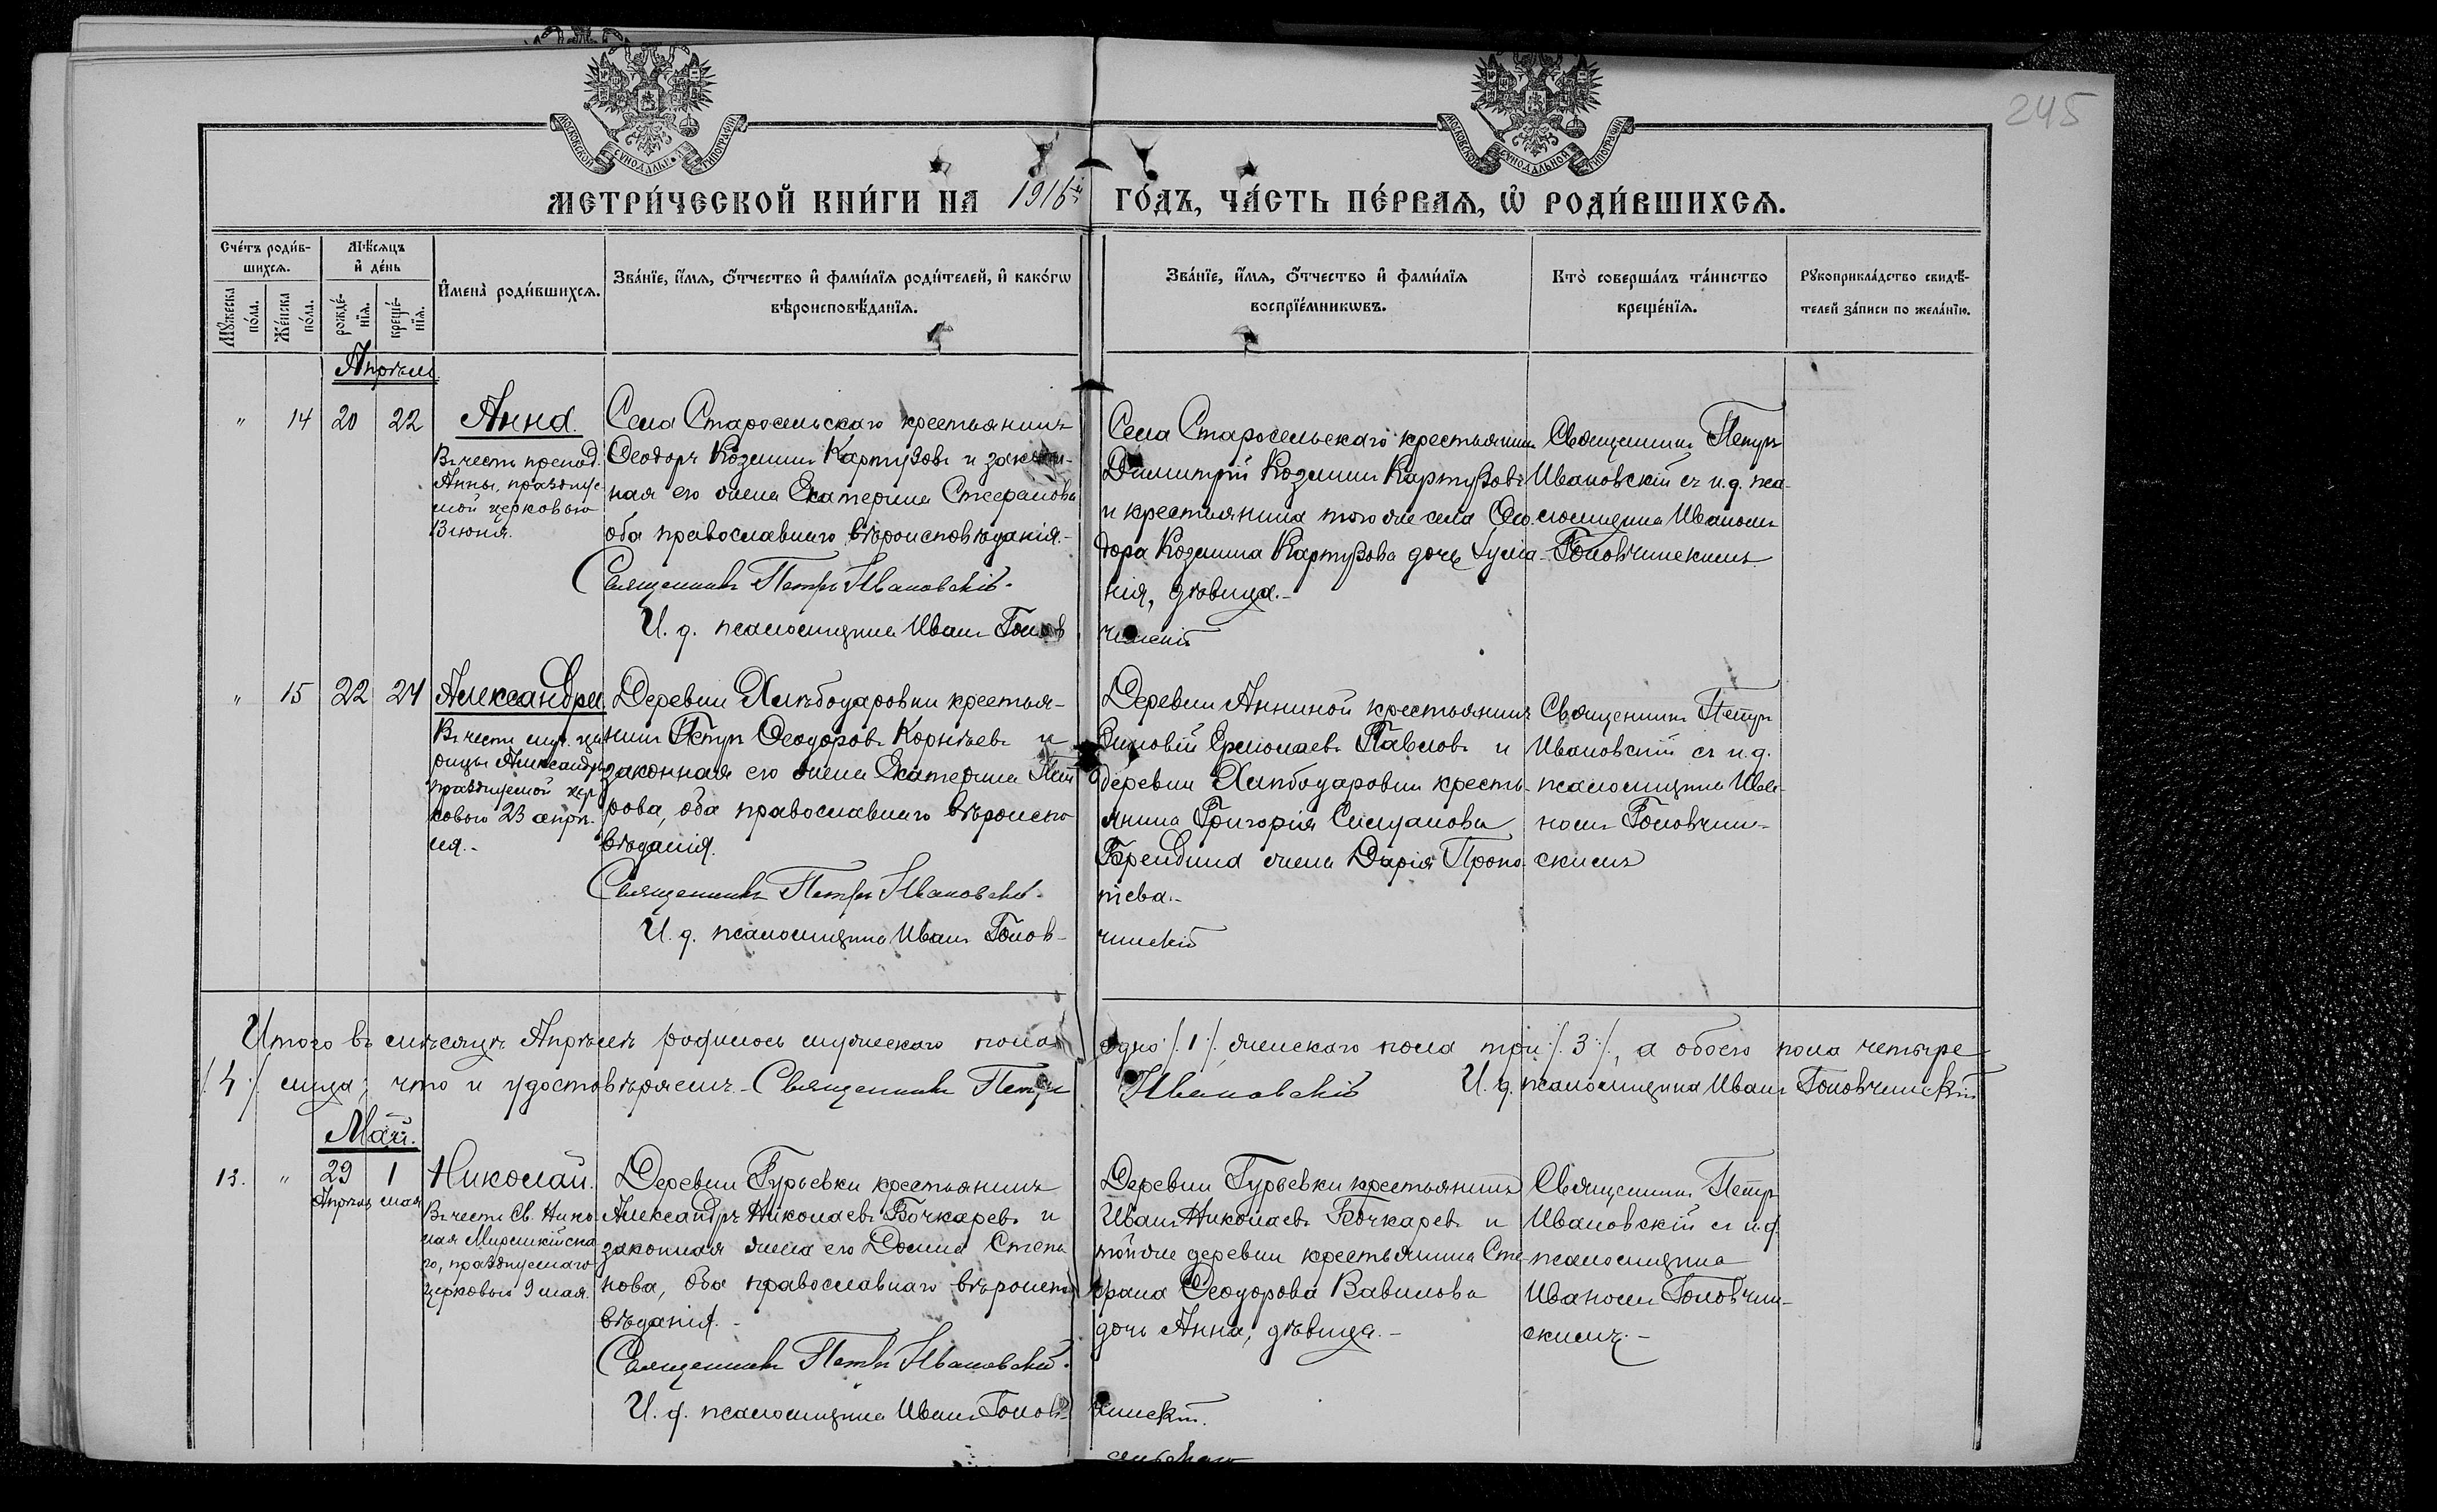 245
МОСКОВСКОЙ СѴНОДАЛЬНОЙ ТИПОГРАФІИ
МОСКОВСКОЙ СѴНОДАЛЬНОЙ ТИПОГРАФІИ
МЕТРИ́ЧЕСКОЙ КНИ́ГИ НА 1916й ГО́ДЪ, ЧА́СТЬ ПЕ́РВАѦ, Ѡ҆ РОДИ́ВШИХСѦ.
Сче́тъ роди́в-
шихсѧ.
Мꙋ́жеска
по́ла.
Же́нска
по́ла.
Мѣ́сѧцъ
и҆ де́нь
рожде́-
нїѧ.
креще́-
нїѧ.
И҆мена̀ роди́вшихсѧ.
Зва́нїе, и҆́мѧ, ѻ҆́тчество и҆ фами́лїѧ роди́телей, и҆ како́гѡ
вѣроисповѣ́данїѧ.
Зва́нїе, и҆́мѧ, ѻ҆́тчество и҆ фами́лїѧ
воспрїе́мникѡвъ.
Кто̀ соверша́лъ та́инство
креще́нїѧ.
Рꙋкоприкла́дство свидѣ́-
телей за́писи по жела́нїю.
Апрѣль.
" 14 20 22
Анна.
Въ честь препод.
Анны, празднуе-
мой церковью
13 июня.
Села Старосельскаго крестьянинъ
Ѳеодоръ Козьминъ Картузовъ и закон-
ная его жена Екатерина Стефанова
оба православнаго вѣроисповѣданія.-
Священникъ Петръ Ивановскій.
И. д. псаломщика Иванъ Голов
чинскій
Села Старосельскаго крестьянинъ
Димитрій Козьминъ Картузовъ
и крестьянина того же села Ѳео
дора Козьмина Картузова дочь Кукіа-
нія, дѣвица.-
Священникъ Петръ
Ивановскій съ и. д. пса-
ломщика Иваномъ
Головчинскимъ
" 15 22 24
Александра
Въ честь муч. ца-
рицы Александры
празднуемой цер
ковью 23 апрѣ-
ля.-
Деревни Хлѣбодаровки крестья-
нинъ Петръ Ѳеодоровъ Корнѣевъ и
законная его жена Екатерина Пет
рова, оба православнаго вѣроиспо
вѣданія.
Священникъ Петръ Ивановскій.
И. д. псаломщика Иванъ Голов-
чинскій
Деревни Анниной крестьянинъ
Зиновій Ермолаевъ Павловъ и
деревни Хлѣбодаровки кресть-
янина Григорія Силуанова
Брендина жена Дарія Проко
піева.-
Священникъ Петръ
Ивановскій съ и. д.
псаломщика Ива-
номъ Головчин-
скимъ
Итого въ мѣсяцѣ Апрѣлѣ родилось мужескаго пола одно /.1./ женскаго пола три /.3./, а обоего пола четыре
/.4./ лица; что и удостовѣряемъ. Священникъ Петръ Ивановскій И. д. псаломщика Иванъ Головчинскій
Май.
13. " 29 1
Апрѣля мая
Николай.
Въ честь Св. Нико
лая Мирликійска
го, празднуемаго
церковью 9 мая.
Деревни Гурьевки крестьянинъ
Александръ Николаевъ Бочкаревъ и
законная жена его Домна Степа
нова, оба православнаго вѣроиспо
вѣданія.-
Священникъ Петръ Ивановскій.
И. д. псаломщика Иванъ Голов-
чинскій.
Деревни Гурьевки крестьянинъ
Иванъ Николаевъ Бочкаревъ и
той же деревни крестьянина Сте-
фана Ѳеодорова Вавилова
дочь Анна, дѣвица.-
Священникъ Петръ
Ивановскій съ и. д.
псаломщика
Иваномъ Головчин-
скимъ.-